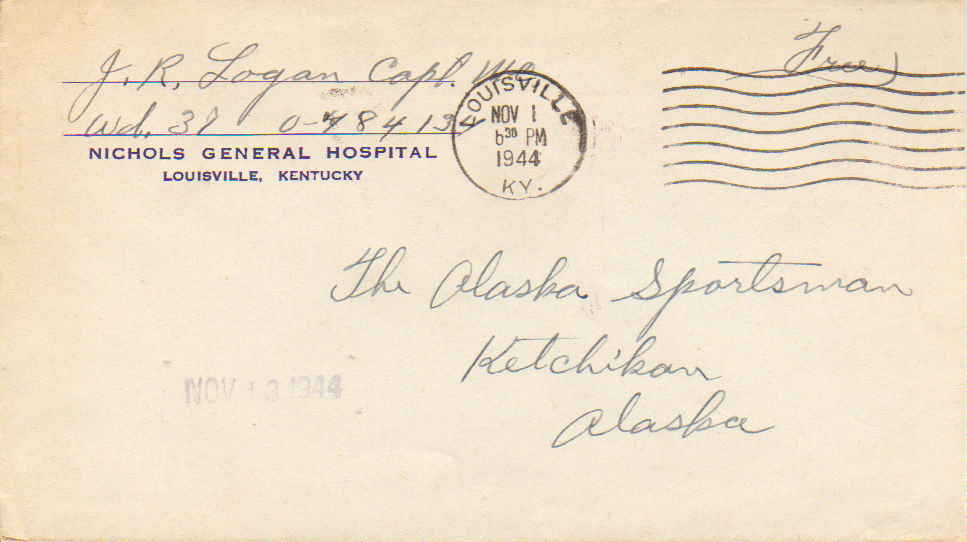 J. R. Logan Capt. MC
Free
Wd. 37 0-484134
NICHOLS GENERAL HOSPITAL
LOUISVILLE, KENTUCKY
LOUISVILLE
NOV 1
6 30 PM
1944
KY.
The Alaska Sportsman
Ketchikan
Alaska
NOV 13 1944